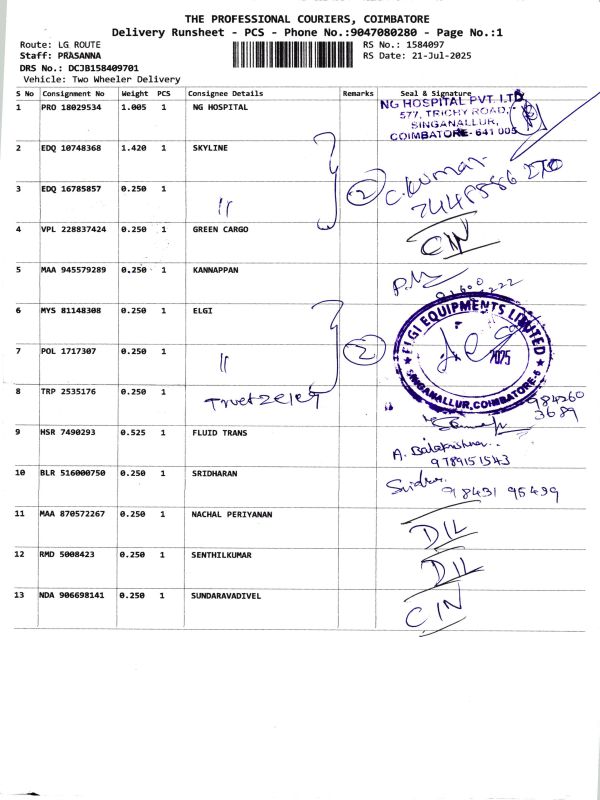 THE PROFESSIONAL COURIERS, COIMBATORE
Delivery Runsheet - PCS - Phone No.:9047080280 - Page No.:1
Route: LG ROUTE RS No.: 1584097
Staff: PRASANNA RS Date: 21-Jul-2025
DRS No.: DCJB158409701
Vehicle: Two Wheeler Delivery
S No Consignment No Weight PCS Consignee Details Remarks Seal & Signature
NG HOSPITAL PVT. LTD
577, TRICHY ROAD,
SINGANALLUR,
COIMBATORE- 641 005
1 PRO 18029534 1.005 1 NG HOSPITAL
2 EDQ 10748368 1.420 1 SKYLINE
2 C. Kumar
3 EDQ 16785857 0.250 1 "
4 VPL 228837424 0.250 1 GREEN CARGO CIN
5 MAA 945579289 0.250 1 KANNAPPAN
6 MYS 81148308 0.250 1 ELGI
ELGI EQUIPMENTS LIMITED
SINGANALLUR, COIMBATORE-5
2025
7 POL 1717307 0.250 1 " 2
8 TRP 2535176 0.250 1
984260
3689
9 HSR 7490293 0.525 1 FLUID TRANS A. Balakrishnan
9789151543
10 BLR 516000750 0.250 1 SRIDHARAN Sridhar
98431 95499
11 MAA 870572267 0.250 1 NACHAL PERIYANAN DIL
12 RMD 5008423 0.250 1 SENTHILKUMAR DIL
13 NDA 906698141 0.250 1 SUNDARAVADIVEL CIN